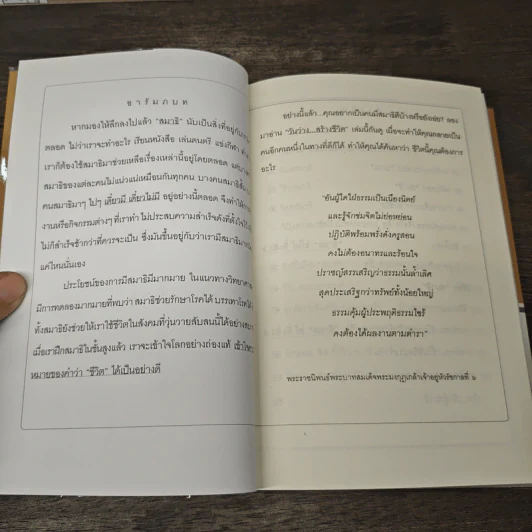 อารัมภบท
หากมองให้ลึกลงไปแล้ว “สมาธิ” นับเป็นสิ่งที่อยู่กับ
ตลอด ไม่ว่าเราจะทำอะไร เรียนหนังสือ เล่นดนตรี แข่งกีฬา
เราก็ต้องใช้สมาธิมาช่วยเหลือเรื่องเหล่านี้อยู่โดยตลอด
สมาธิของแต่ละคนไม่แน่วแน่เหมือนกันทุกคน บางคนสมาธิ
คนสมาธิมาๆ ไปๆ เดี๋ยวมี เดี๋ยวไม่มี อยู่อย่างนี้ตลอด จึงทำให้
งานหรือกิจกรรมต่างๆ ที่เราทำ ไม่ประสบความสำเร็จดังที่ตั้งใจ
ไม่ก็สำเร็จช้ากว่าที่ควรจะเป็น ซึ่งมันขึ้นอยู่กับว่าเรามีสมาธิ
แค่ไหนนั่นเอง
ประโยชน์ของการมีสมาธิมีมากมาย ในแนวทางวิทยา
มีการทดลองมากมายที่พบว่า สมาธิช่วยรักษาโรคได้ บรรเทา
ทั้งสมาธิยังช่วยให้เราใช้ชีวิตในสังคมที่วุ่นวายสับสนนี้ได้อย่าง
เมื่อเราฝึกสมาธิในขั้นสูงแล้ว เราจะเข้าใจโลกอย่างถ่องแท้
หมายของคำว่า “ชีวิต” ได้เป็นอย่างดี
อย่างนี้แล้ว...คุณอยากเป็นคนมีสมาธิดีบ้างหรือยังเอ่ย? ลอง
มาอ่าน “วันว่าง...สร้างชีวิต” เล่มนี้กันดู เผื่อจะทำให้คุณกลายเป็น
คนอีกคนหนึ่งในทางที่ดีก็ได้ ทำให้คุณได้ค้นหาว่า ชีวิตนี้คุณต้องการ
อะไร
“อันผู้ใดไปธรรมเป็นเนืองนิตย์
และรู้จักข่มจิตไม่ย่อหย่อน
ปฏิบัติพร้อมพรั่งดั่งครูสอน
คงไม่ต้องอนาทรและร้อนใจ
ปราชญ์ตรรเสริญว่าธรรมนั้นล้ำเลิศ
สุดประเสริฐกว่าทรัพย์ทั้งน้อยใหญ่
ธรรมคุ้มผู้ประพฤติธรรมไซร้
คงต้องได้ผลงานตามตำรา”
พระราชนิพนธ์พระบาทสมเด็จพระมงกุฎเกล้าเจ้าอยู่หัวรัชกาลที่ ๖